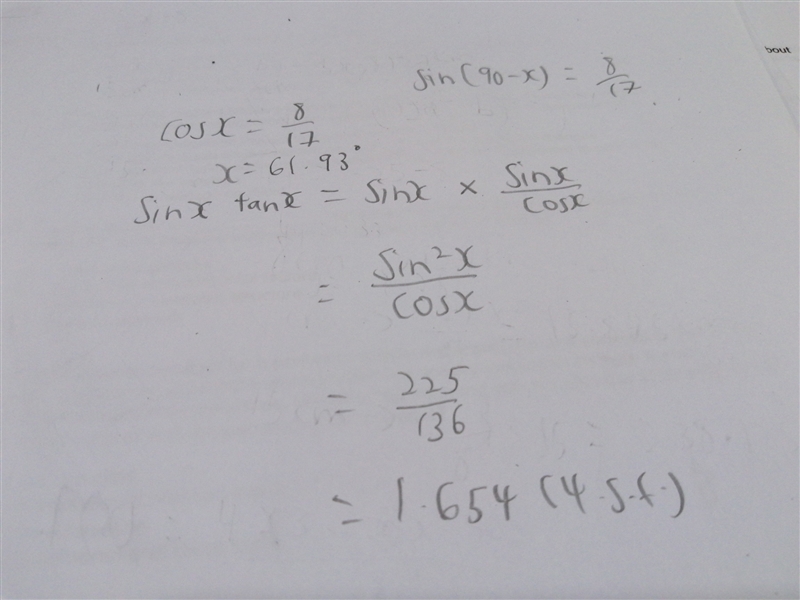 bout
sin(90-x) = 8/17
cosx = 8/17
x = 61.93°
sinx tanx = sinx × sinx/cosx
= sin²x/cosx
= 225/136
= 1.654 (4.s.f.)